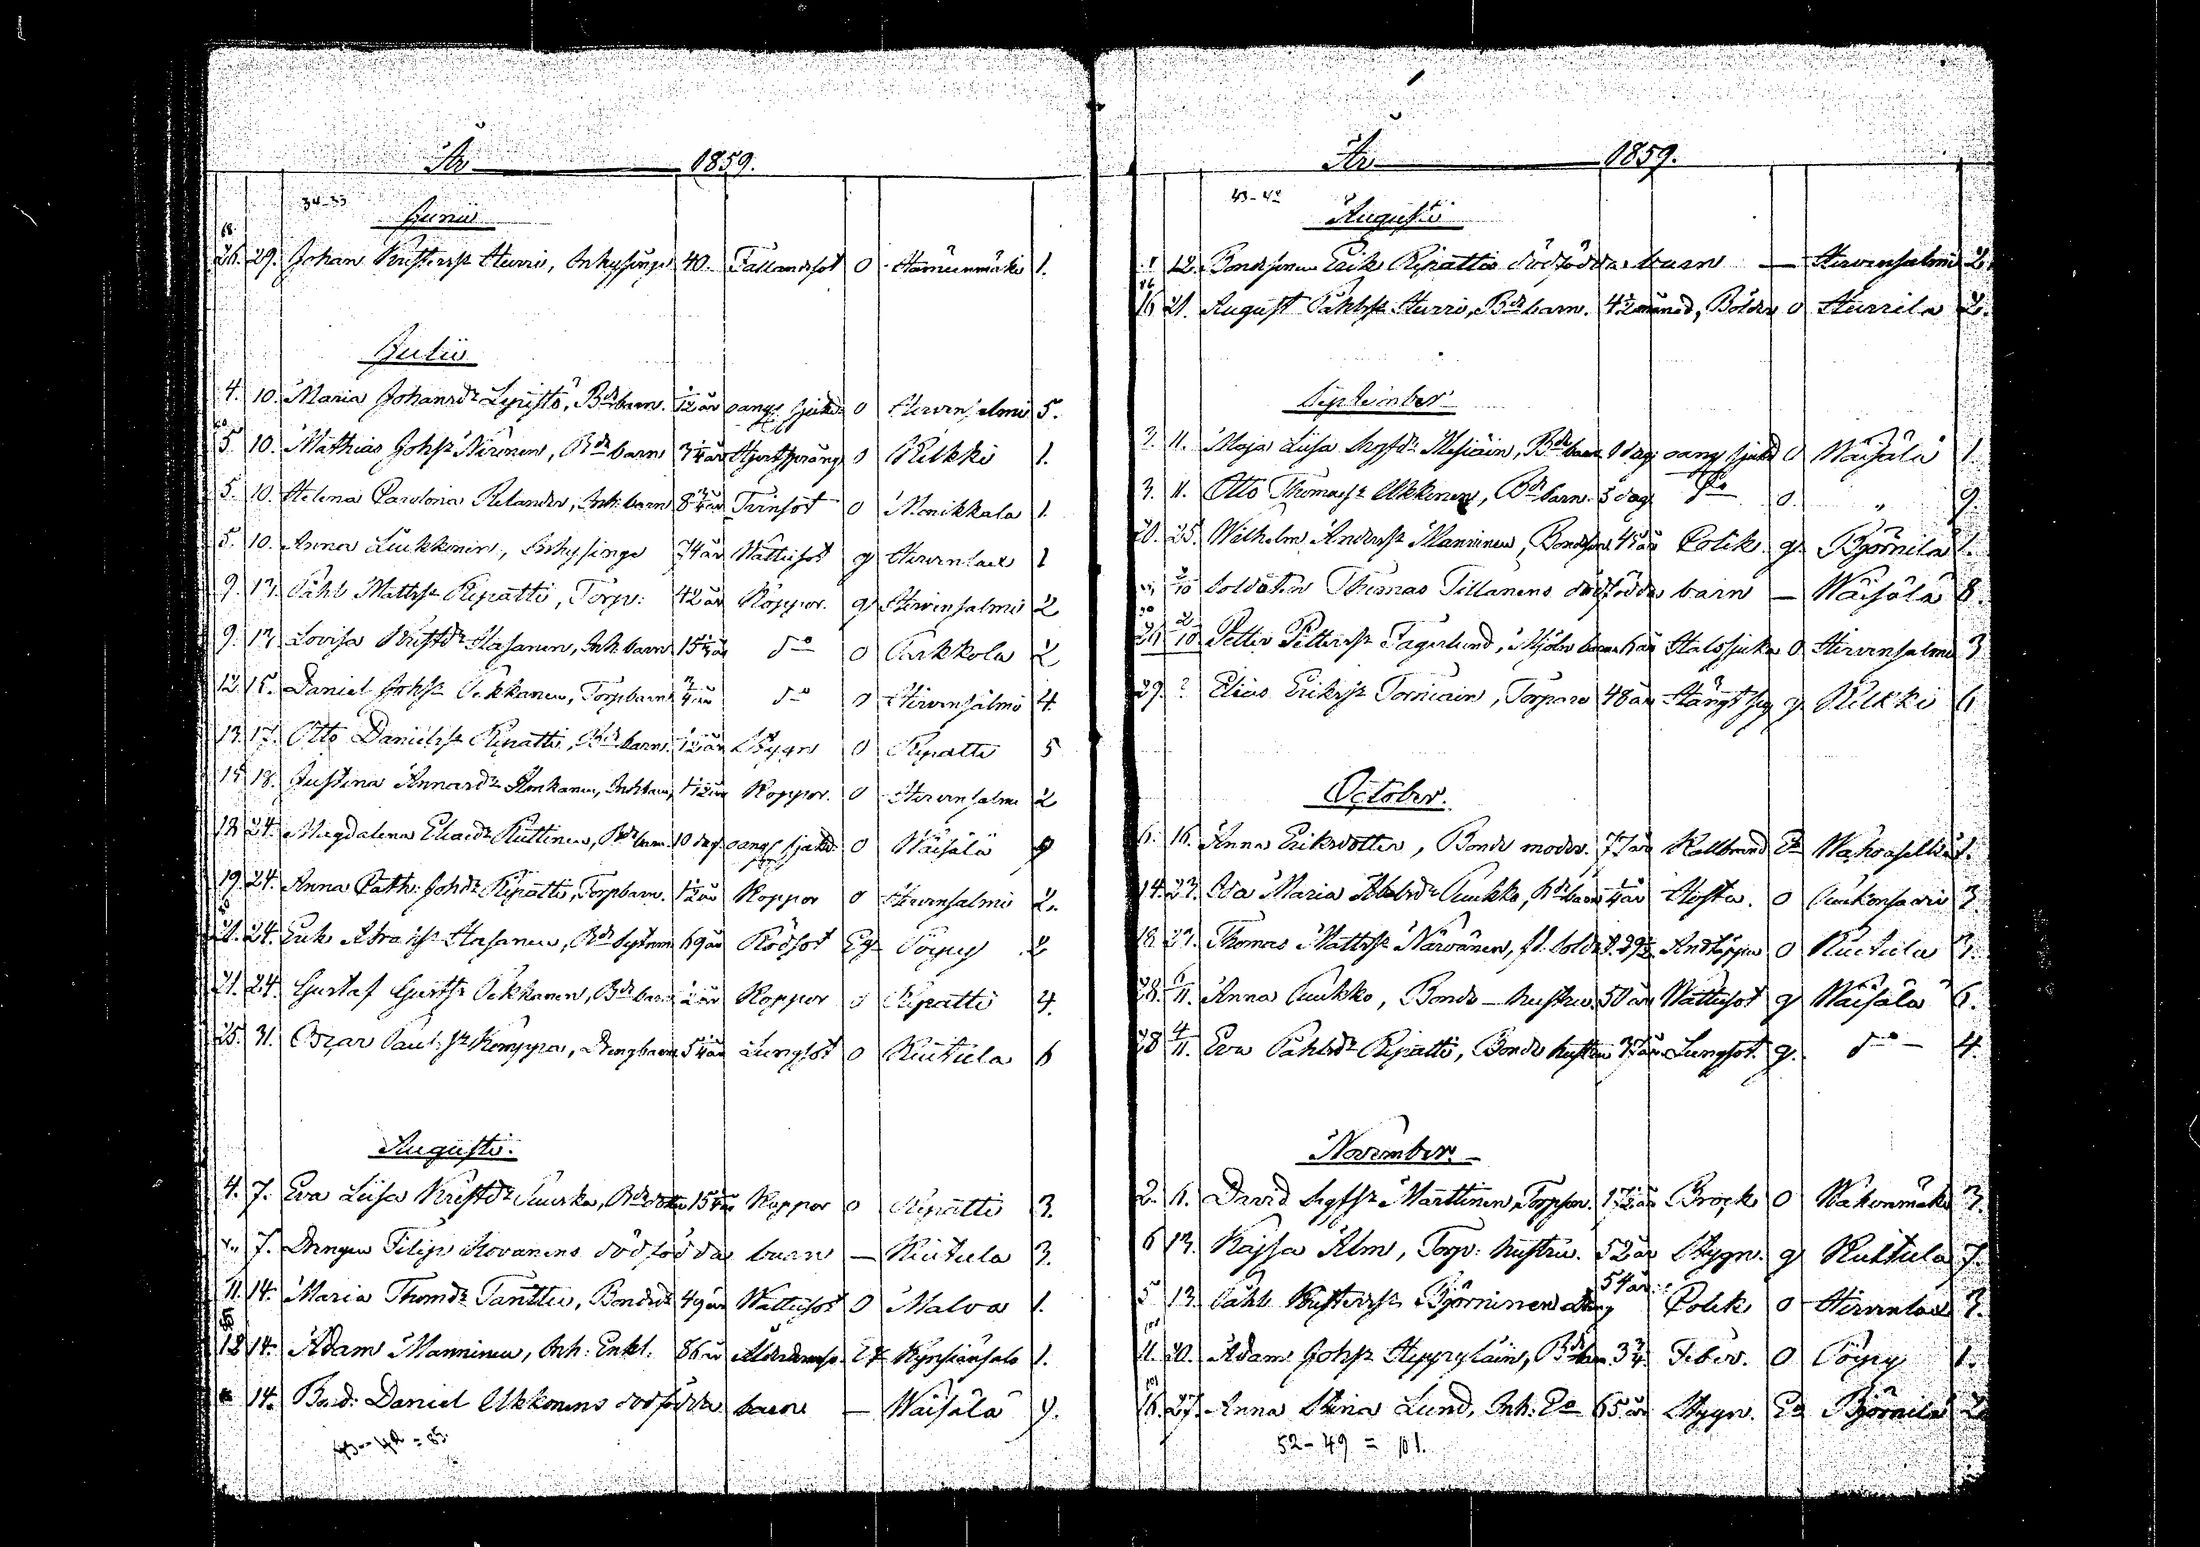 År 1859.
34-33
Junii
26. 29. Johan Kristerss: Hurri, Inhysinge 40. Fallandsot o Hämeenmäki 1.
Julii
4. 10. Maria Johansdr Lyristö, Bdebarn. 1/2 år oangf sjukd o Hirvensalmi 5.
5 10. Mathias Johss: Nironen, Bde barn 3 1/4 år Hjertsprång o Kilkki 1.
5. 10. Helena Carolina Relander, Inh: barn 8 3/4 år Tvinsot o Monikkala 1.
5. 10. Anna Liukkonen, Inhysinge 74 år Wattusot g Hirvenlax 1
9. 13. Påhl Mattss: Ripatti, Torp: 42 år Koppor. g Hirvensalmi 2
9. 13. Lovisa Kristdr Hasanen, Inh. barn 15 1/4 år do o Parkkola 2
12. 15. Daniel Johss: Pekkanen, Torpbarn 3/4 år do o Hirvensalmi 4
13. 17. Otto Danielss: Ripatti, Bde barn. 1/2 år Stygn o Ripatti 5
15 18. Justina Annasdr Honkanen, Inhbarn, 1 1/2 år Koppor. o Hirvensalmi 2
18 24. Magdalena Eliaedr Kuttinen, Bde barn. 10 dag. oangf sjukd. o Waisälä 9
19. 24. Anna Cath: Johdr Ripatti, Torpbarn. 1 1/2 år Koppor o Hirvensalmi 2.
21. 24. Erik Abrahss: Hasanen, Bde Sytnin 69 år Rödsot Eg Pöyry 2
21. 24. Gustaf Gustss: Pekkanen, Bde barn 1/2 år Koppor o Ripatti 4.
25. 31. Oscar Paulss: Komppa, Drengbarn 5 1/4 år Lungsot o Kuitula 6
Augusti.
4. 7. Eva Lisa Kristdr Kuurka, Bde dotter 15 1/4 år Koppor o Ripatti 3.
7. Drengen Filip Kovanens dödfödda barn — Kuitula 3.
11. 14. Maria Thomdr Tanttu, Bondedr 49 år Wattusot o Malva 1.
12 14. Adam Manninen, Inh: Enkl. 86 år Ålderdomss. Ek Kynsiänsalo 1.
14. Bond: Daniel Ukkonens dödfödda barn — Waisälä 9.
År 1859.
Augusti
12. Bondsonen Erik Ripattis dödfödda barn — Hirvensalmi 2.
16 21. August Påhlss: Hurri, Bde barn. 4 1/2 månad, Bölder o Hurrila 2.
September
3. 11. Maja Lisa Sigfdr Mesiäin, Bde barn 1 dag oangf sjukd o Waisälä 1.
3. 11. Otto Thomass: Ukkonen, Bde barn. 5 dag do o. „ 9.
20. 25. Wilhelm Anderss: Manninen, Bondeson 45 år Kolik g Björnilä 1.
2/10 Soldaten Thomas Tillanens dödfödda barn — Waisälä 8.
2/10 Petter Petterss: Fagerlund, Mjöln barn 6 år Halssjuka o Hirvensalmi 3
29. ? Elias Erikss: Torniain, Torpare 48 år Hängt sig g Kilkki 6
October.
6. 16. Anna Eriksdotter, Bonde moder. 77 år Kallbrand Ea Wahvaselkä 1.
14. 23. Eva Maria Abelsdr Puukko, Bde barn 1/4 år Hosta. o Puukonsaari 3.
18 23. Thomas Mattss: Närvänen, f.d. Soldat 29 1/2 Andtäppa o Kuitula 3.
28. 6/11. Anna Puukko, Bonde-hustru 50 år Wattusot g Waisälä 6.
28 4/11. Eva Påhlsdr Ripatti, Bonde hustru 37 år Lungsot. g. do 4.
November.
2. 6. David Sigfss: Marttinen, Torpson. 1 1/2 år Bråck o Wahonmäki 3.
6 13. Kajsa Alm, Torp: hustru. 52 år Stygn. g Kuitula 7.
5 13. Påhl Kristerss: Björninen dräng 54 år: Kolik o Hirvenlax 3.
11. 20. Adam Johss: Hyyryläin, Bde barn 3 3/4. Feber. o Pöyry 1.
16. 27. Anna Stina Lund, Inh: Ea 65 år Stygn. Ea Björnilä 2
52-49 = 101.